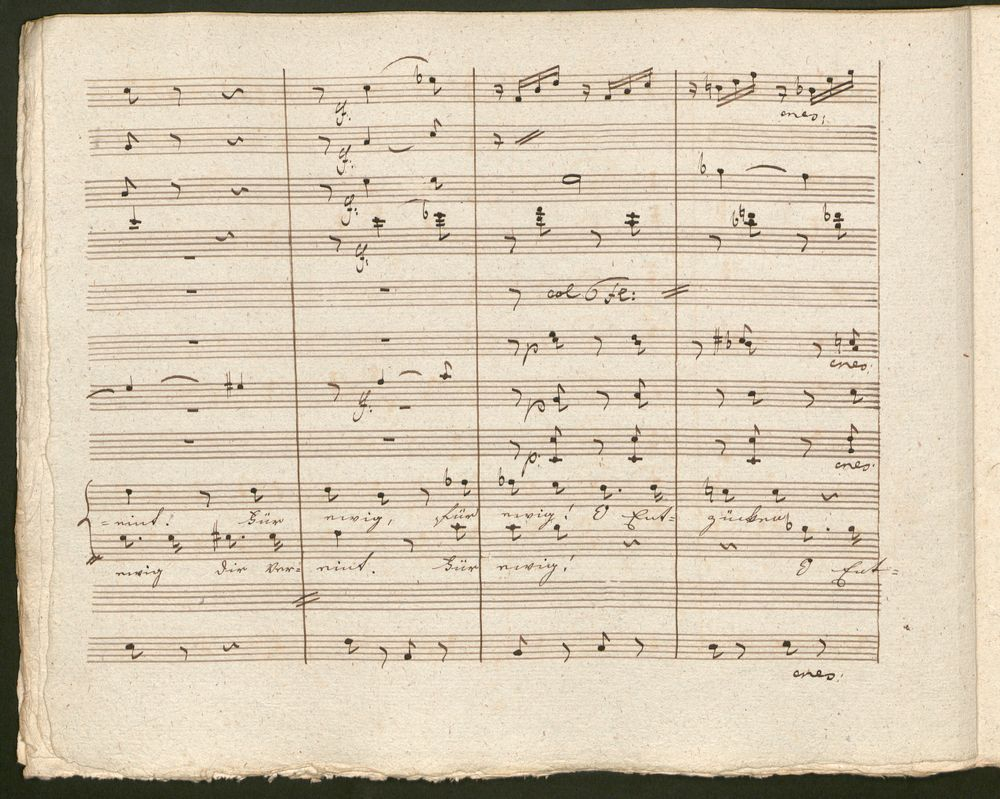 cres:
f.
f.
f.
f.
col 6 Fl:
p
cres:
f.
p
p.
cres:
=eint. Für ewig, für ewig! O Ent= zücken
ewig dir ver= eint. Für ewig! O Ent=
cres: